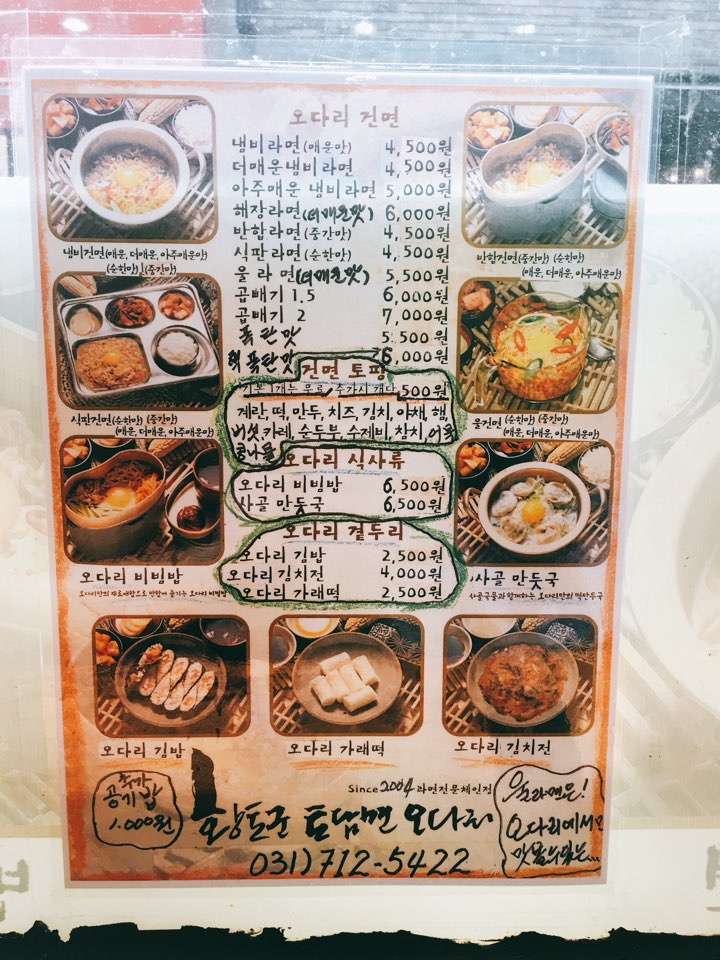 오다리 건면
냄비라면(매운맛) 4,500원
더매운냄비라면 4,500원
아주매운 냄비라면 5,000원
해장라면(더매운맛) 6,000원
반합라면(중간맛) 4,500원
식판라면(순한맛) 4,500원
울라면(더매운맛) 5,500원
곱배기 1.5 6,000원
곱배기 2 7,000원
폭탄맛 5.500원
핵폭탄맛 6,000원
건면 토핑
기본1개는 무료, 추가시 개당 500원
계란, 떡, 만두, 치즈, 김치, 야채, 햄,
버섯, 카레, 순두부, 수제비, 참치, 어묵
콩나물
오다리 식사류
오다리 비빔밥 6,500원
사골 만둣국 6,500원
오다리 곁두리
오다리 김밥 2,500원
오다리김치전 4,000원
오다리 가래떡 2,500원
냄비건면(매운, 더매운, 아주매운맛)
(순한맛)(중간맛)
반합건면(중간맛) (순한맛)
(매운, 더매운, 아주매운맛)
식판건면(순한맛) (중간맛)
(매운, 더매운, 아주매운맛)
울건면 (순한맛) (중간맛)
(매운, 더매운, 아주매운맛)
오다리 비빔밥
사골 만둣국
사골국물과 함께하는 오다리만의 떡만두국
오다리 김밥
오다리 가래떡
오다리 김치전
추가
공기밥
1.000원
Since 2004 라면전문체인점
황토군 토담면 오다리
031)712-5422
울라면은!
오다리에서만